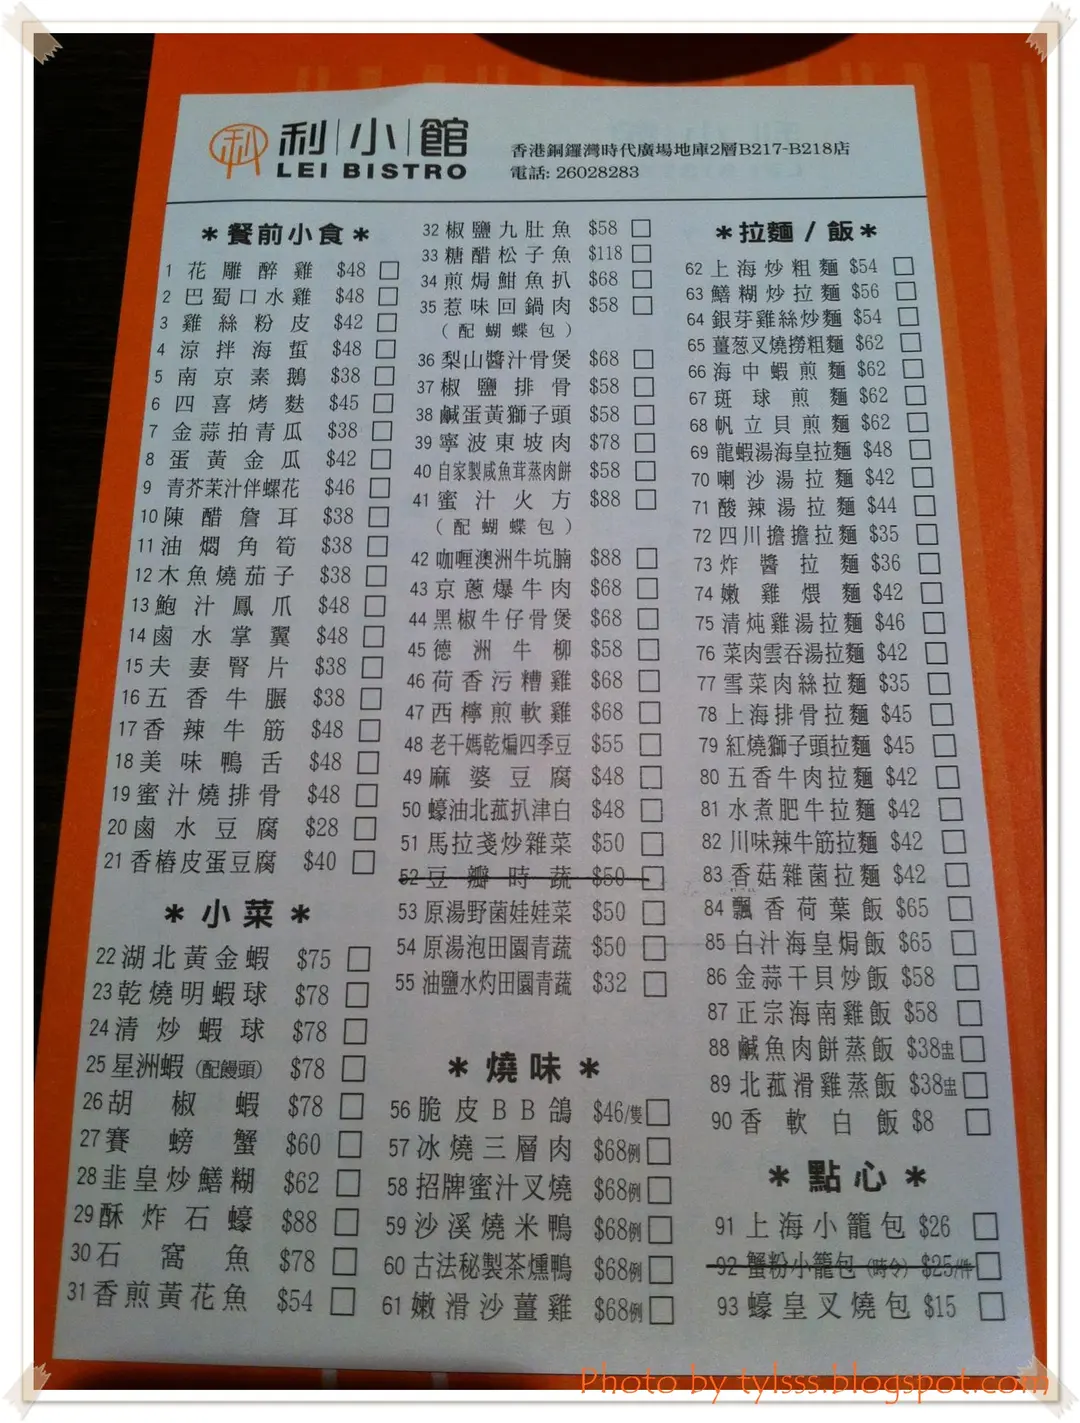 利小館
LEI BISTRO
香港銅鑼灣時代廣場地庫2層B217-B218店
電話: 26028283
*餐前小食*
1 花雕醉雞 $48
2 巴蜀口水雞 $48
3 雞絲粉皮 $42
4 涼拌海蜇 $48
5 南京素鵝 $38
6 四喜烤麩 $45
7 金蒜拍青瓜 $38
8 蛋黃金瓜 $42
9 青芥茉汁伴螺花 $46
10 陳醋詹耳 $38
11 油燜角筍 $38
12 木魚燒茄子 $38
13 鮑汁鳳爪 $48
14 鹵水掌翼 $48
15 夫妻腎片 $38
16 五香牛𦟌 $38
17 香辣牛筋 $48
18 美味鴨舌 $48
19 蜜汁燒排骨 $48
20 鹵水豆腐 $28
21 香椿皮蛋豆腐 $40
*小菜*
22 湖北黃金蝦 $75
23 乾燒明蝦球 $78
24 清炒蝦球 $78
25 星洲蝦(配饅頭) $78
26 胡椒蝦 $78
27 賽螃蟹 $60
28 韭皇炒鱔糊 $62
29 酥炸石蠔 $88
30 石窩魚 $78
31 香煎黃花魚 $54
32 椒鹽九肚魚 $58
33 糖醋松子魚 $118
34 煎焗鮒魚扒 $68
35 惹味回鍋肉 $58
(配蝴蝶包)
36 梨山醬汁骨煲 $68
37 椒鹽排骨 $58
38 鹹蛋黃獅子頭 $58
39 寧波東坡肉 $78
40 自家製咸魚茸蒸肉餅 $58
41 蜜汁火方 $88
(配蝴蝶包)
42 咖喱澳洲牛坑腩 $88
43 京蔥爆牛肉 $68
44 黑椒牛仔骨煲 $68
45 德洲牛柳 $58
46 荷香污糟雞 $68
47 西檸煎軟雞 $68
48 老干媽乾煸四季豆 $55
49 麻婆豆腐 $48
50 蠔油北菰扒津白 $48
51 馬拉戔炒雜菜 $50
52 豆瓣時蔬 $50
53 原湯野菌娃娃菜 $50
54 原湯泡田園青蔬 $50
55 油鹽水灼田園青蔬 $32
*燒味*
56 脆皮BB鴿 $46/隻
57 冰燒三層肉 $68例
58 招牌蜜汁叉燒 $68例
59 沙溪燒米鴨 $68例
60 古法秘製茶燻鴨 $68例
61 嫩滑沙薑雞 $68例
*拉麵/飯*
62 上海炒粗麵 $54
63 鱔糊炒拉麵 $56
64 銀芽雞絲炒麵 $54
65 薑葱叉燒撈粗麵 $62
66 海中蝦煎麵 $62
67 斑球煎麵 $62
68 帆立貝煎麵 $62
69 龍蝦湯海皇拉麵 $48
70 喇沙湯拉麵 $42
71 酸辣湯拉麵 $44
72 四川擔擔拉麵 $35
73 炸醬拉麵 $36
74 嫩雞煨麵 $42
75 清炖雞湯拉麵 $46
76 菜肉雲吞湯拉麵 $42
77 雪菜肉絲拉麵 $35
78 上海排骨拉麵 $45
79 紅燒獅子頭拉麵 $45
80 五香牛肉拉麵 $42
81 水煮肥牛拉麵 $42
82 川味辣牛筋拉麵 $42
83 香菇雜菌拉麵 $42
84 飄香荷葉飯 $65
85 白汁海皇焗飯 $65
86 金蒜干貝炒飯 $58
87 正宗海南雞飯 $58
88 鹹魚肉餅蒸飯 $38盅
89 北菰滑雞蒸飯 $38盅
90 香軟白飯 $8
*點心*
91 上海小籠包 $26
92 蟹粉小籠包(時令) $25/件
93 蠔皇叉燒包 $15
Photo by tylsss.blogspot.com